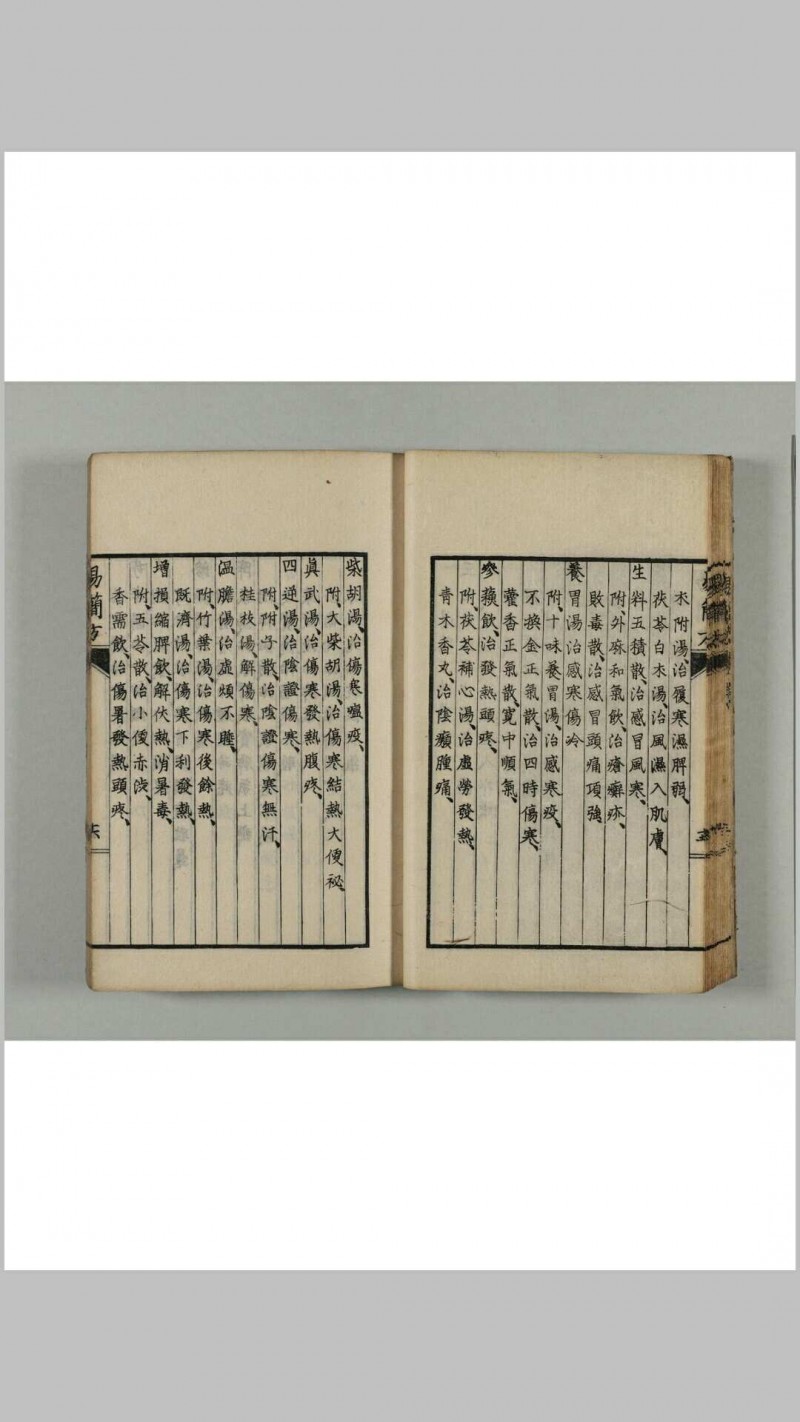 朮附湯、治履寒濕脾弱、
茯苓白朮湯、治風濕入肌膚、
生料五積散、治感冒風寒、
附、外麻和氣飲、治瘡癬疥、
敗毒散、治感冒頭痛項強
養胃湯治感寒傷冷
附、十味養胃湯、治感寒疫、
不換金正氣散、治四時傷寒、
藿香正氣散、寬中順氣、
參蘇飲、治發熱頭疼、
附、茯苓補心湯、治虛勞發熱、
青木香丸、治陰癩腫痛、
柴胡湯、治傷寒嗢疫、
附、大柴胡湯、治傷寒結熱大便祕、
眞武湯、治傷寒發熱腹疼、
四逆湯、治陰證傷寒、
附、附子散、治陰證傷寒無汗、
桂枝湯、解傷寒、
溫膽湯、治虛煩不睡、
附、竹葉湯、治傷寒後餘熱、
既濟湯、治傷寒下利發熱、
增損縮脾飲、解伏熱、消暑毒、
附、五苓散、治小便赤澁、
香需飲、治傷暑發熱頭疼、
易簡方
六